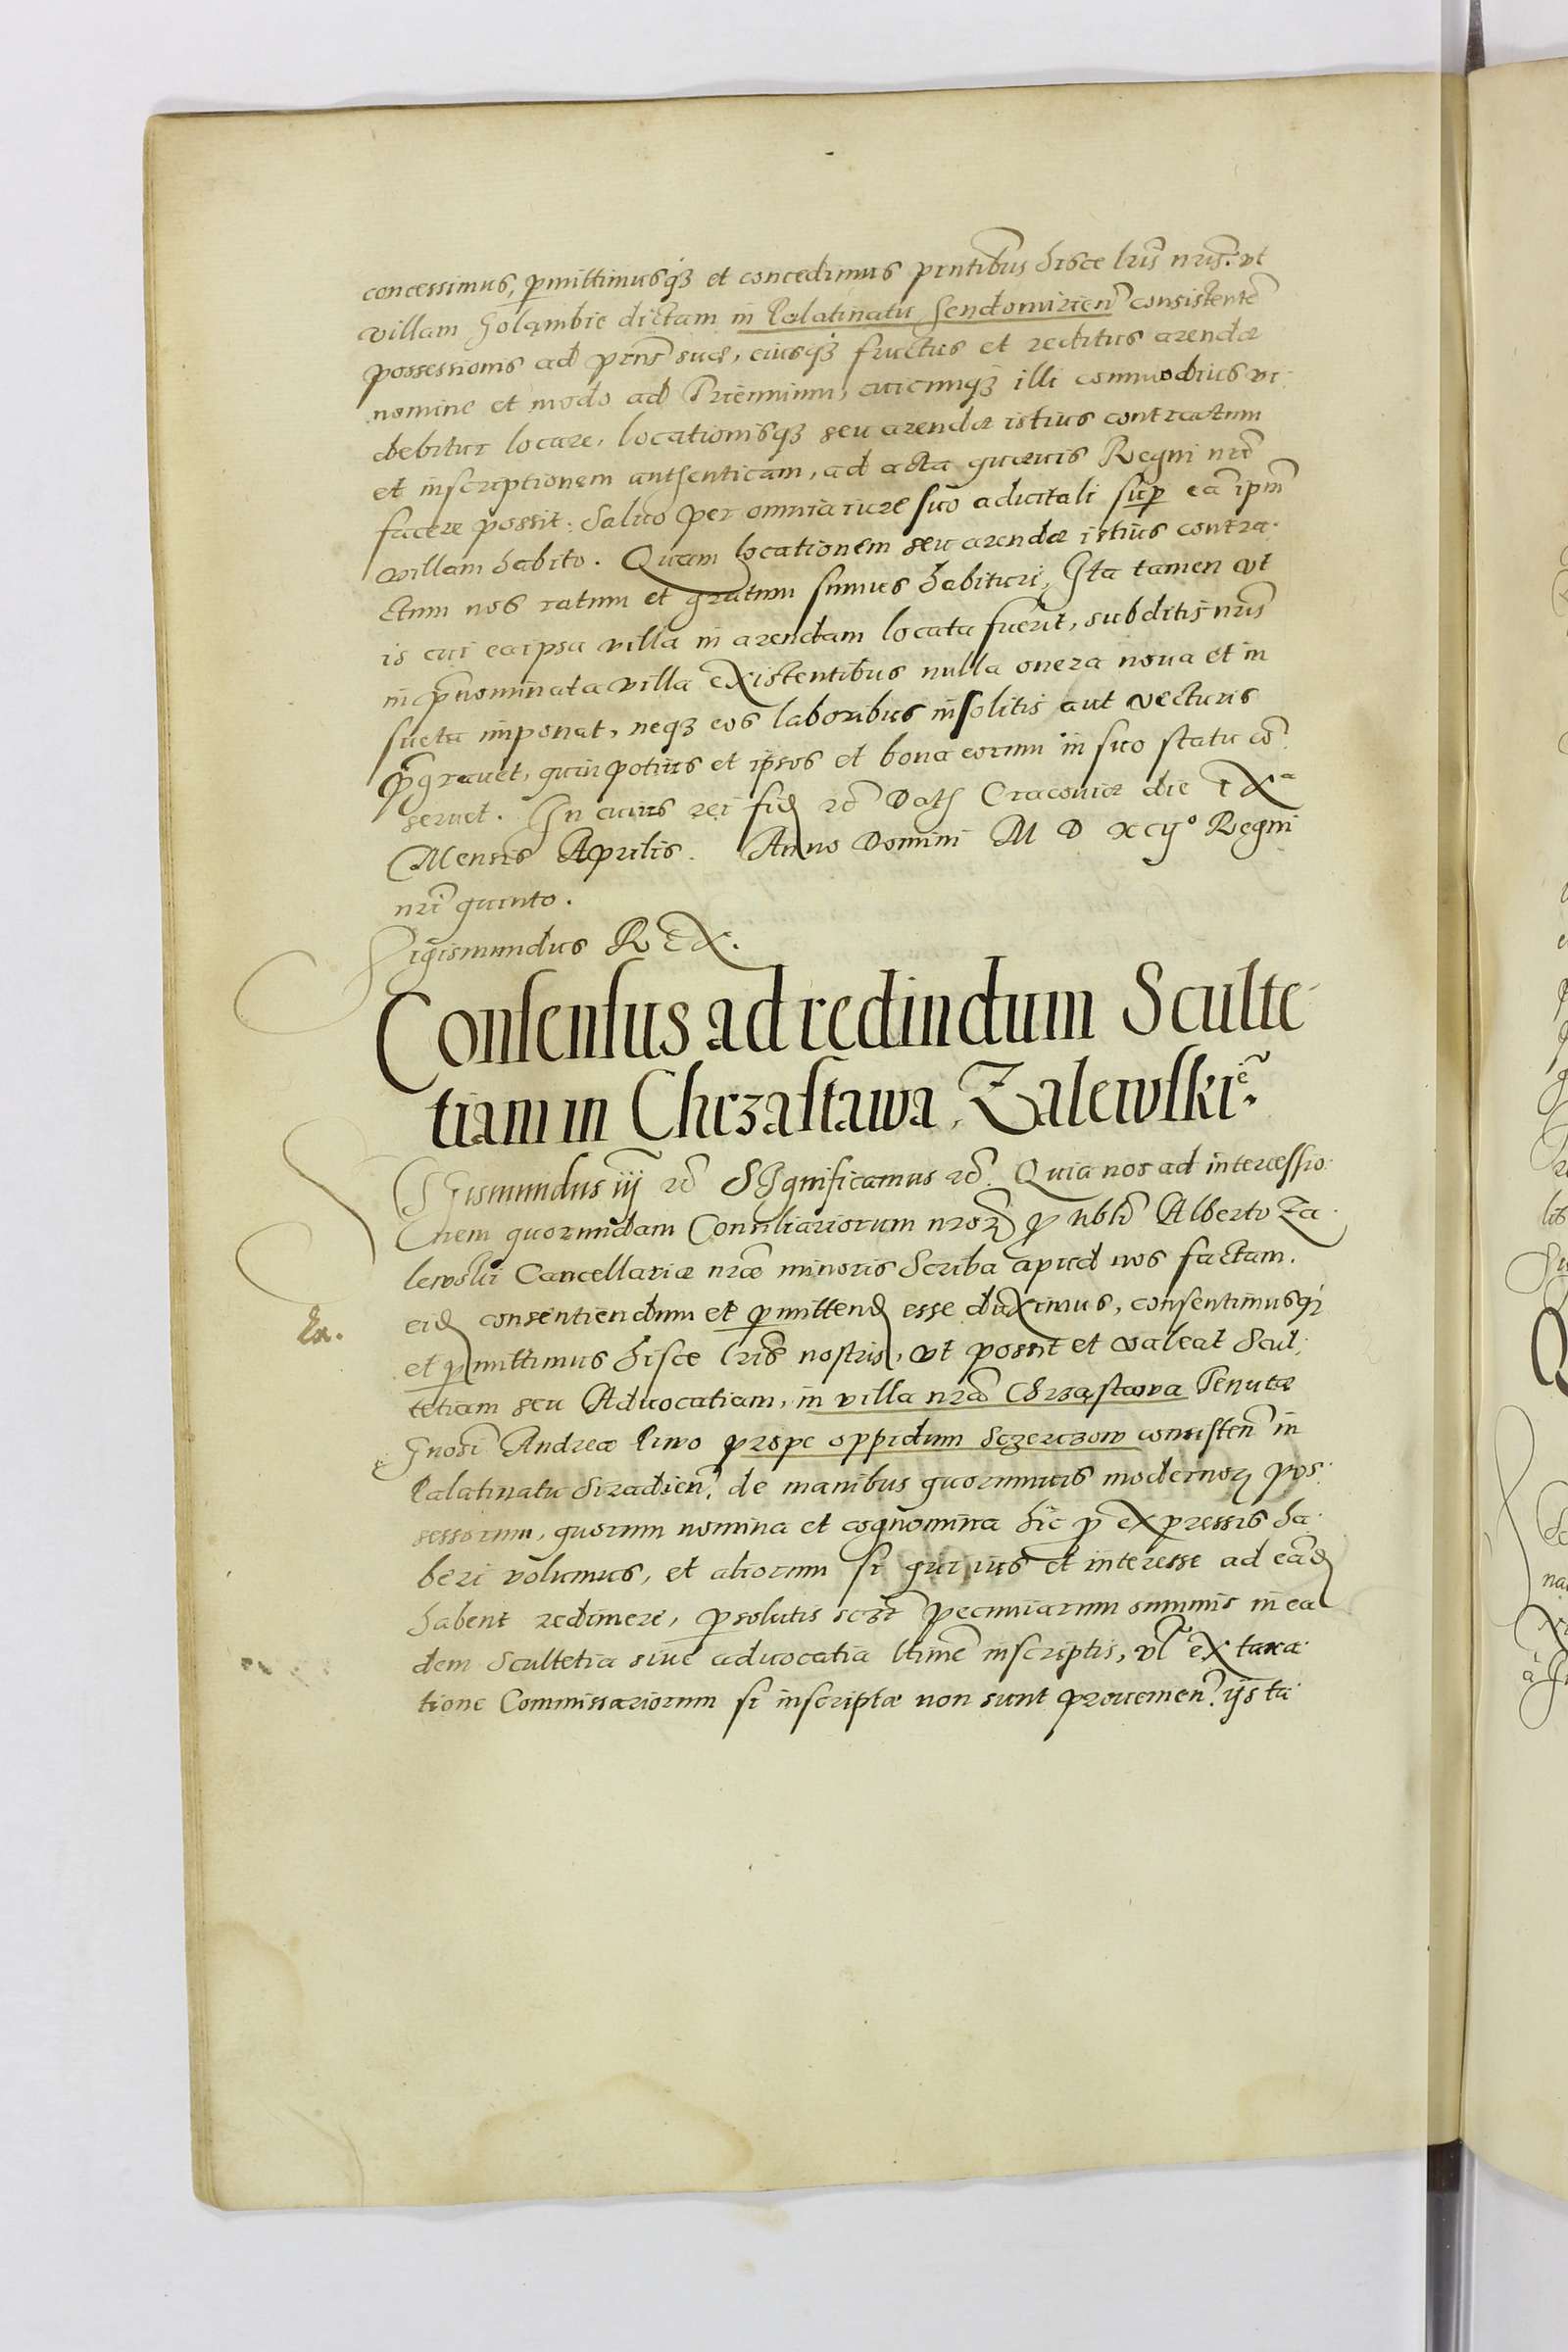 concessimus, pmittimusq3 et concedimus pntibus hisce lris nris. vt
villam Golambie dictam in Palatinatu Sendomirien consistente
possessionis ad pns suae, eiusq3 fructus et reditus arendae
nomine et modo ad Triennium, cuicunq3 illi commodius vi
debitur locare, locationisq3 seu arendae istius contractum
et inscriptionem authenticam, ad acta quaeuis Regni nri
facere possit: Saluo per omnia iure suo aduitali sup ea ipm
villam habito. Quam locationem seu arendae istius contra
ctum nos ratum et gratum sumus habituri, Ita tamen vt
is cui ea ipsa villa in arendam locata fuerit, subditis nris
in pnominata villa existentibus nulla onera noua et in
sueta imponat, neq3 eos laboribus insolitis aut vecturis
pgrauet, quin potius et ipsos et bona eorum in suo statu co
seruet. In cuius rei fid rc Dath Cracoviae die IXa
Mensis Aprilis. Anno Domini M D xcijo Regni
nri quinto.
Sigismundus REX.
Consensus ad redindum Sculte
tiam in Chrzastawa, Zalewskie.
SIgismundus iij rc SIgnificamus rc. Quia nos ad intercessio
nem quorundam Consiliariorum nror p nbli Alberto Za
lewski Cancellariae nrae minoris Scriba apud nos factam.
Ex.
eid consentiendum et pmittend esse duximus, consentimusq3
et pmittimus hisce lris nostris, vt possit et valeat Scul
tetiam seu Aduocatiam, in villa nra Chrząstawa Tenutae
Gnosi Andreae Piwo prope oppidum Sczerczow consisten in
Palatinatu Siradien. de manibus quorumuis modernor pos
sessorum, quorum nomina et cognomina hic p expressis ha
beri volumus, et aliorum si qui ius et interesse ad ead
habent redimere, psolutis pecuniarum summis in ea
dem Scultetia siue aduocatia ltime inscriptis, vl ex taxa
tione Commissariorum si inscriptae non sunt prouenien. ijs tu